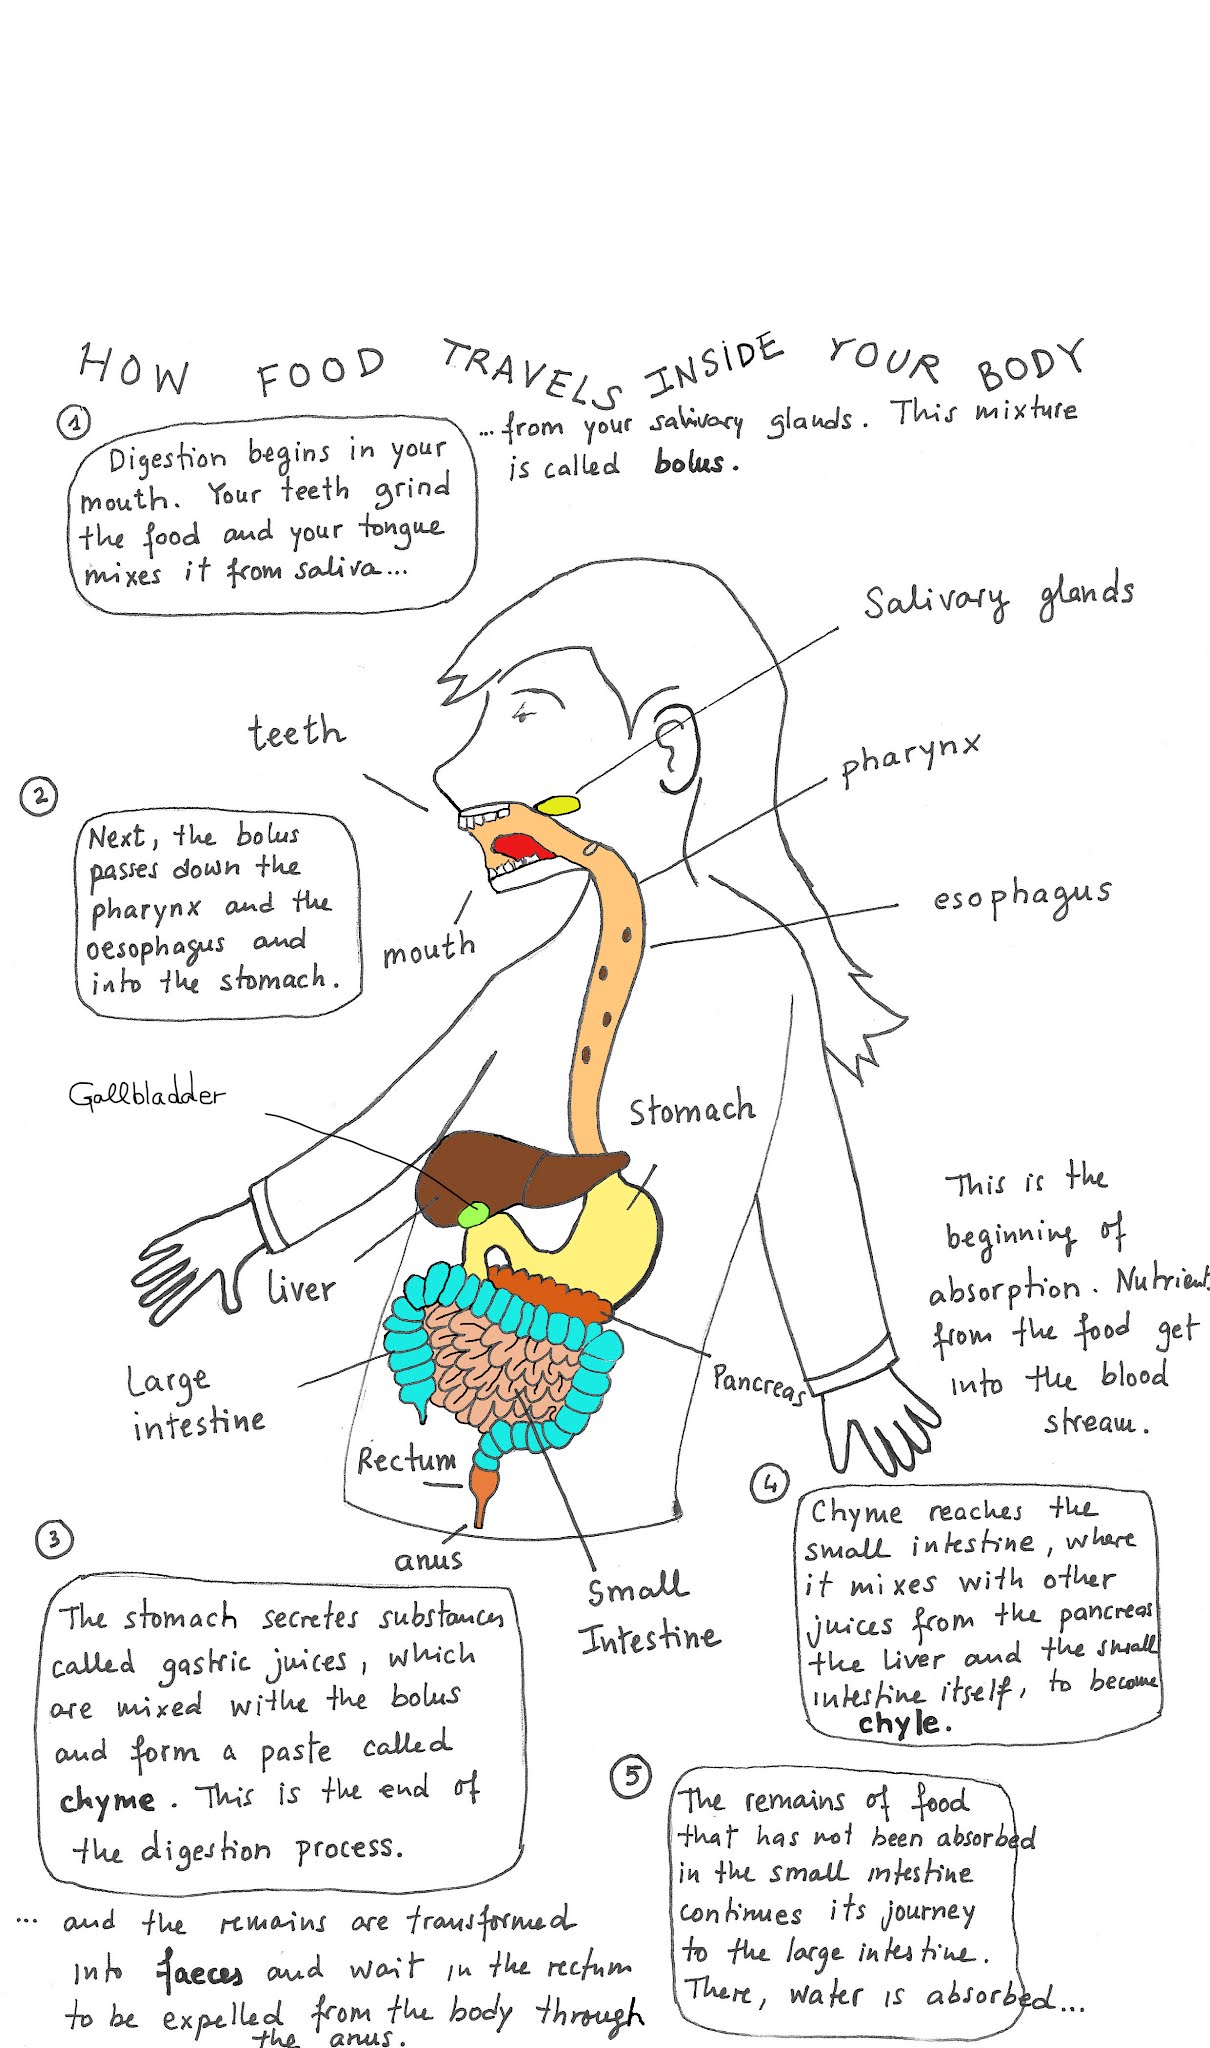 HOW FOOD TRAVELS INSIDE YOUR BODY
1
Digestion begins in your
mouth. Your teeth grind
the food and your tongue
mixes it from saliva...
... from your salivary glands. This mixture
is called bolus.
Salivary glands
teeth
pharynx
2
Next, the bolus
passes down the
pharynx and the
oesophagus and
into the stomach.
esophagus
mouth
Gallbladder
Stomach
liver
Large
intestine
Pancreas
Rectum
anus
Small
Intestine
3
The stomach secretes substances
called gastric juices, which
are mixed withe the bolus
and form a paste called
chyme. This is the end of
the digestion process.
4
Chyme reaches the
small intestine, where
it mixes with other
juices from the pancreas
the liver and the small
intestine itself, to become
chyle.
This is the
beginning of
absorption. Nutrient.
from the food get
into the blood
stream.
5
The remains of food
that has not been absorbed
in the small intestine
continues its journey
to the large intestine.
There, water is absorbed...
... and the remains are transformed
into faeces and wait in the rectum
to be expelled from the body through
the anus.